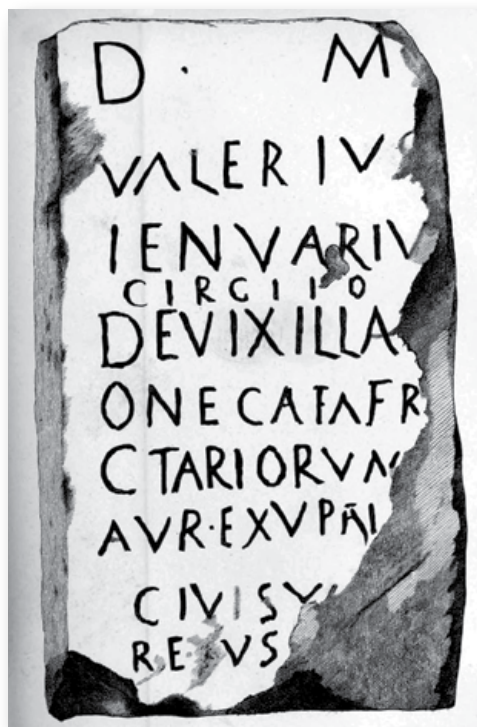 D · M
VALERIV
IENVARIV
CIRGIIO
DEVIXILLA
ONECATAFR
CTARIORVM
AVR·
CIVISV